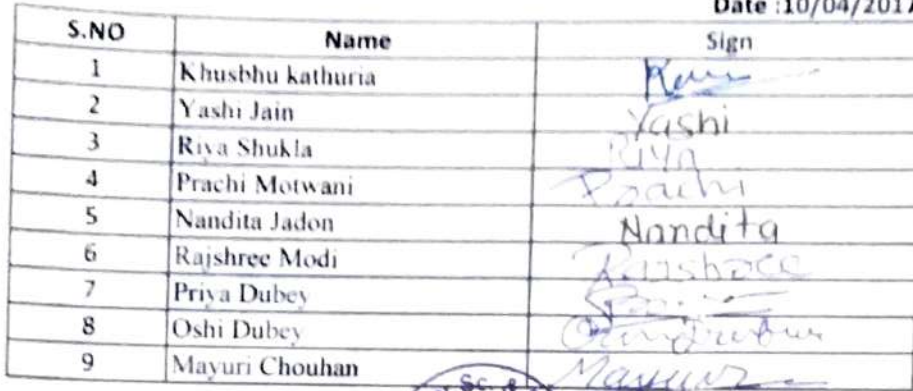 Date :10/04/2017
S.NO Name Sign
1 Khusbhu kathuria
2 Yashi Jain Yashi
3 Riya Shukla Riya
4 Prachi Motwani Prachi
5 Nandita Jadon Nandita
6 Rajshree Modi Rajshree
7 Priya Dubey
8 Oshi Dubey
9 Mayuri Chouhan Mayuri
Sc. &